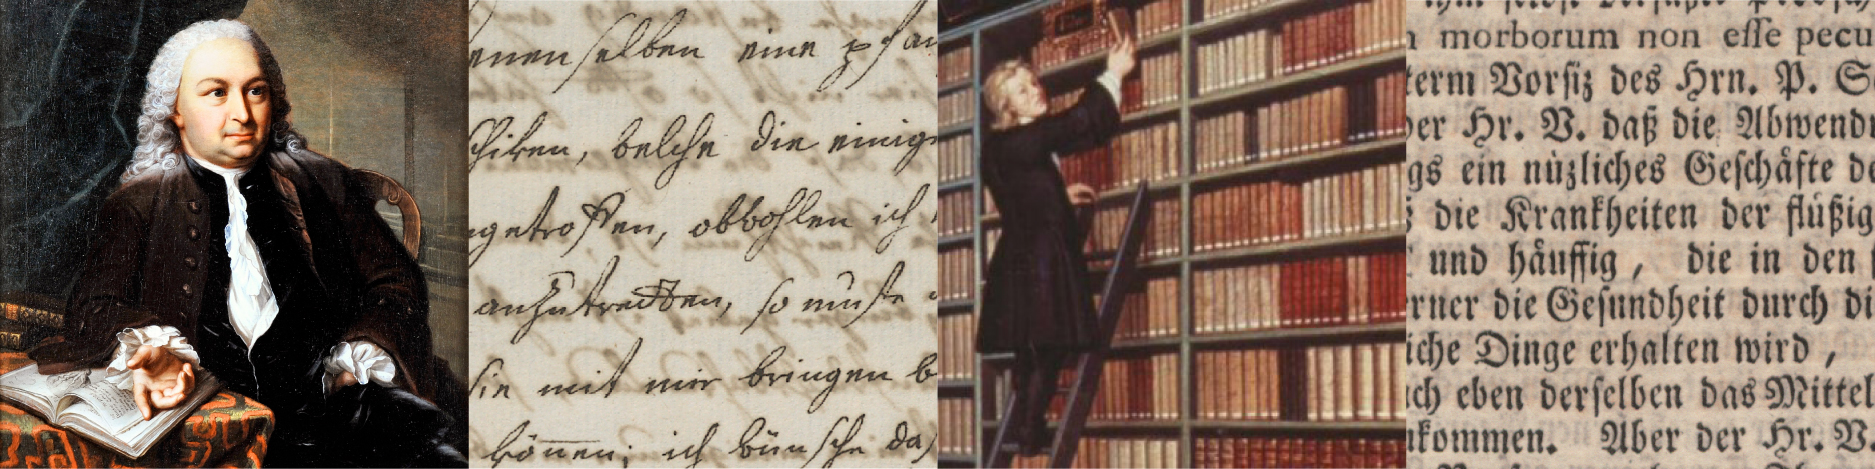 enenselben eine pflan
schiken, welche die einig
getroffen, obwohlen ich
anzutreffen, so muste
sie mit mir bringen
können; ich wünsche das
morborum non esse pecu
term Vorsiz des Hrn. P. S
der Hr. V. daß die Abwend
gs ein nüzliches Geschäfte de
die Krankheiten der flüßig
und häuffig, die in den
erner die Gesundheit durch di
iche Dinge erhalten wird,
ch eben derselben das Mittel
kommen. Aber der Hr. V.